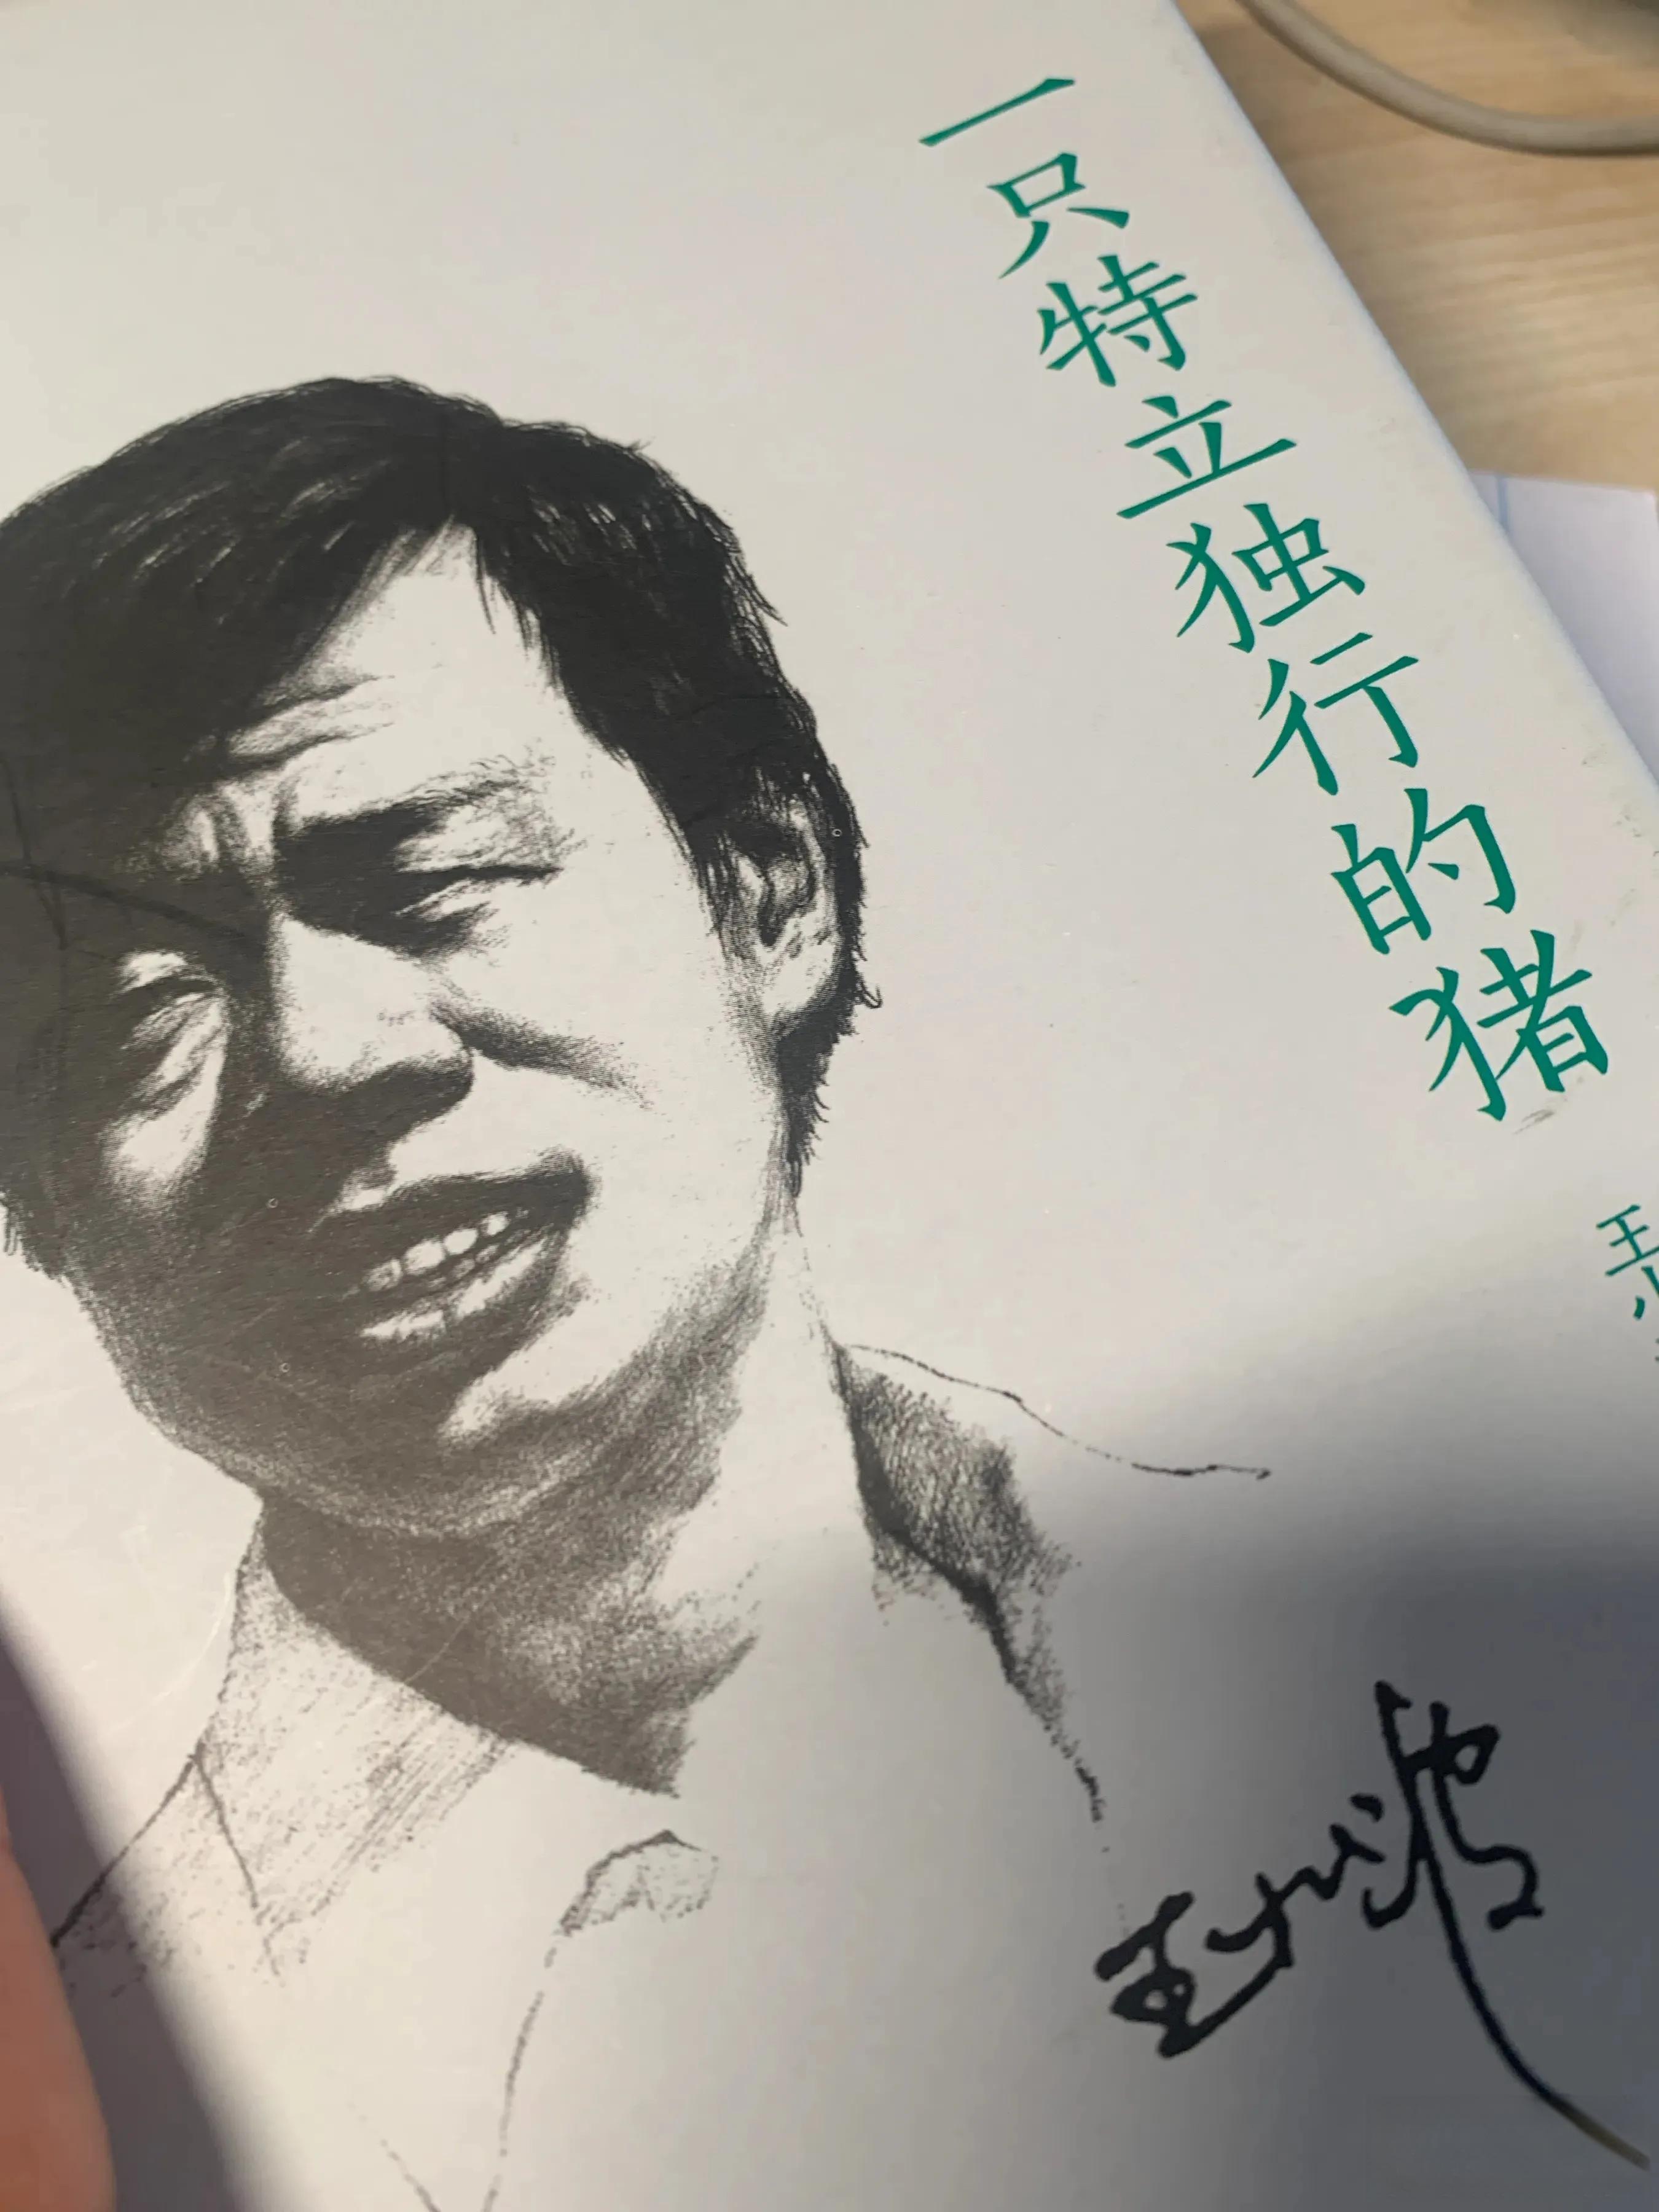 一只特立独行的猪
王小
王小波